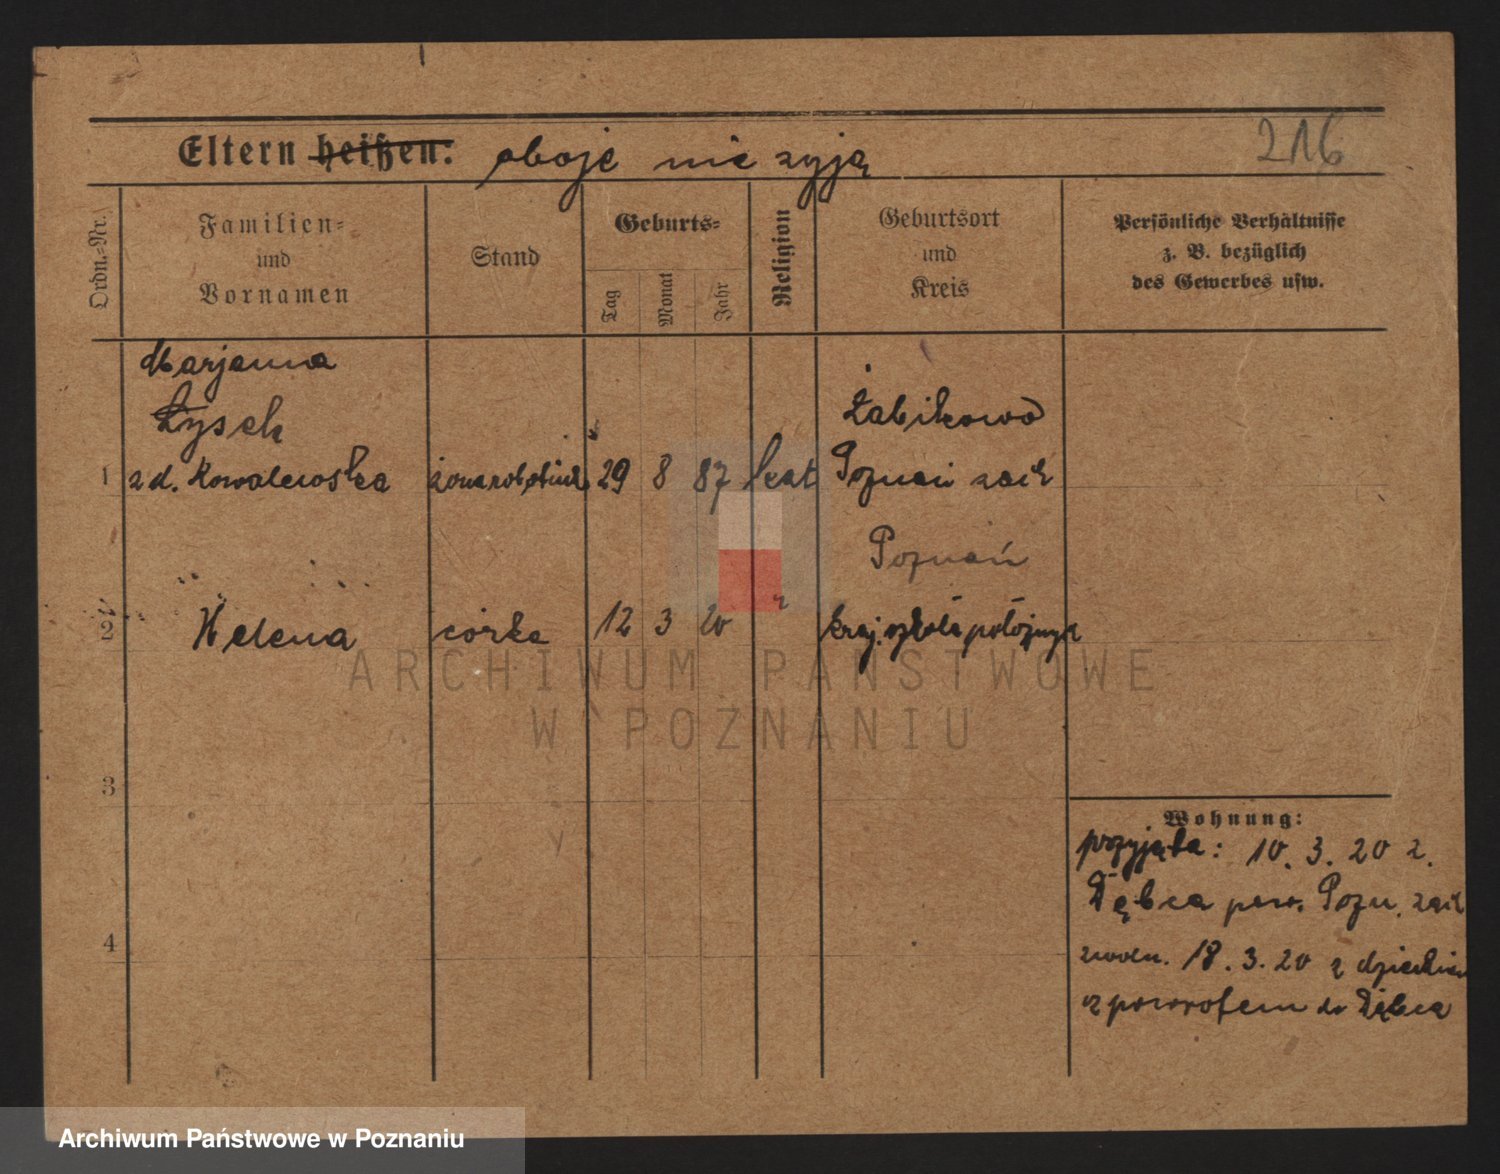 216
Eltern heißen: oboje nie żyją
Ordn.-Nr.
Familien-
und
Vornamen
Stand
Geburts-
Tag
Monat
Jahr
Religion
Geburtsort
und
Kreis
Persönliche Verhältnisse
z. B. bezüglich
des Gewerbes usw.
Marjanna
Łysek
1 z d. Kowalewska żona robotnik 29 8 87 kat
Żabikowo
Poznań zach
2 Helena córka 12 3 20 "
Poznań
kraj. szkoła położnych
3
4
Wohnung:
przyjęta: 10. 3. 20 z
Dębca pow. Pozn. zach
zwoln. 18. 3. 20 z dzieckiem
z powrotem do Dębca
ARCHIWUM PAŃSTWOWE
W POZNANIU
Archiwum Państwowe w Poznaniu